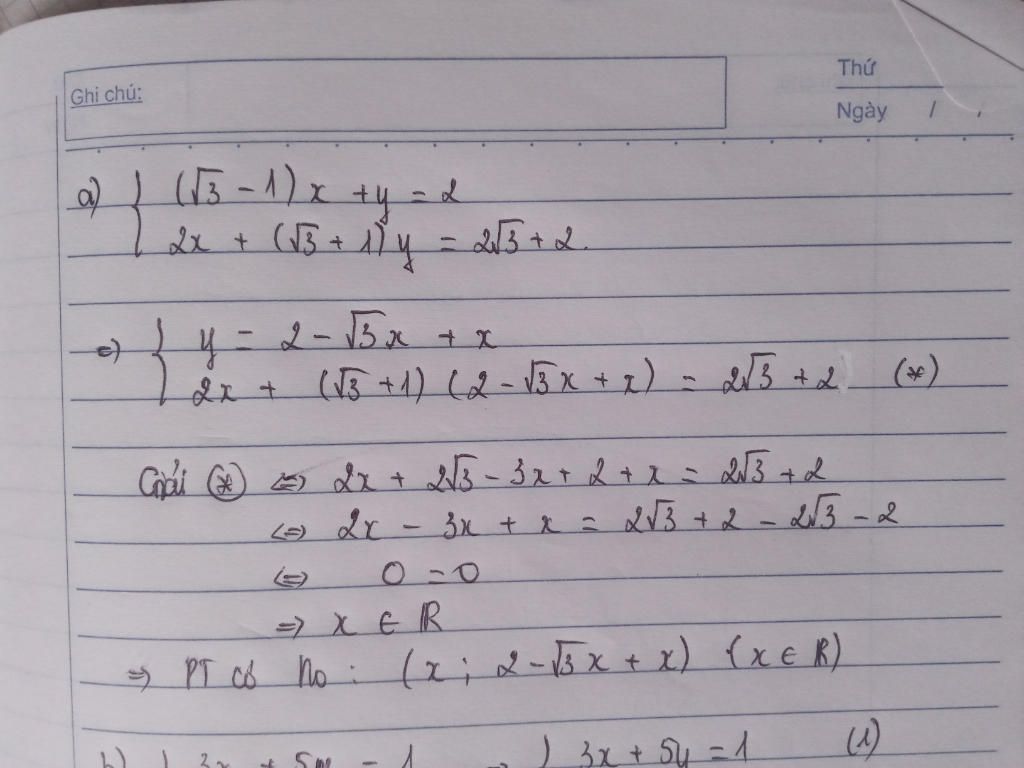 Ghi chú:
Thứ
Ngày / /
a) { (√3 - 1)x + y = 2
2x + (√3 + 1)y = 2√3 + 2.
=> { y = 2 - √3x + x
2x + (√3 + 1)(2 - √3x + x) = 2√3 + 2 (*)
Giải (*) <=> 2x + 2√3 - 3x + 2 + x = 2√3 + 2
<=> 2x - 3x + x = 2√3 + 2 - 2√3 - 2
<=> 0 = 0
=> x ∈ ℝ
=> PT có No : (x ; 2 - √3x + x) (x ∈ ℝ)
b) 3x + 5y = 1 => 3x + 5y = 1 (1)